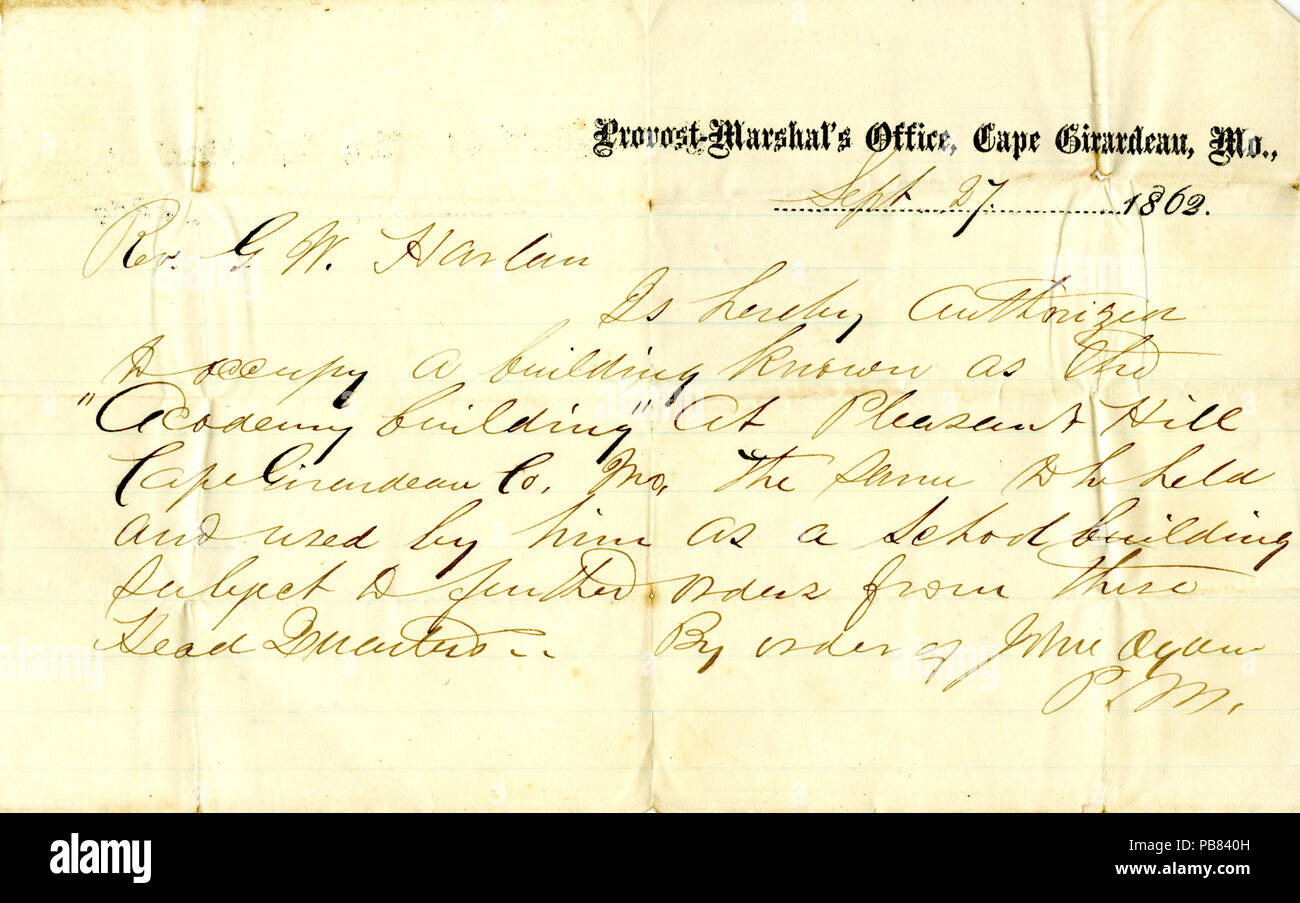 Provost-Marshal's Office, Cape Girardeau, Mo.,
Sept 27 1863.
Rev. G. W. Harlan
Is hereby authorized
to occupy a building known as the
"Academy building" at Pleasant Hill
Cape Girardeau Co. Mo. the same to be held
and used by him as a school building
subject to further orders from these
Head Quarters.. By order of John
P. M.
alamy
alamy
Image ID: PB840H
www.alamy.com